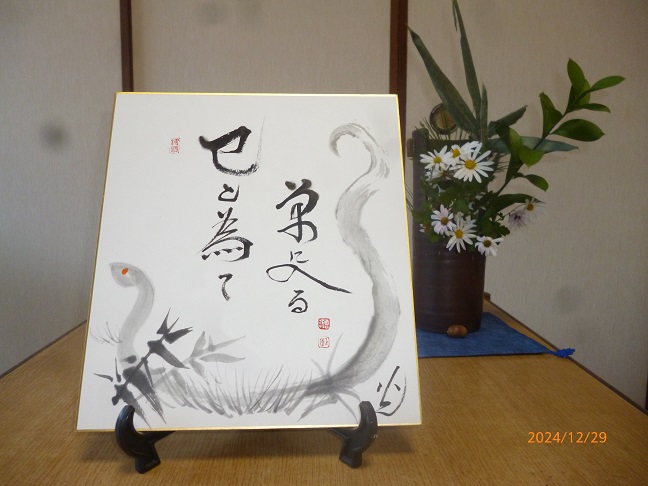 巳と為て
草に入る
2024/12/29